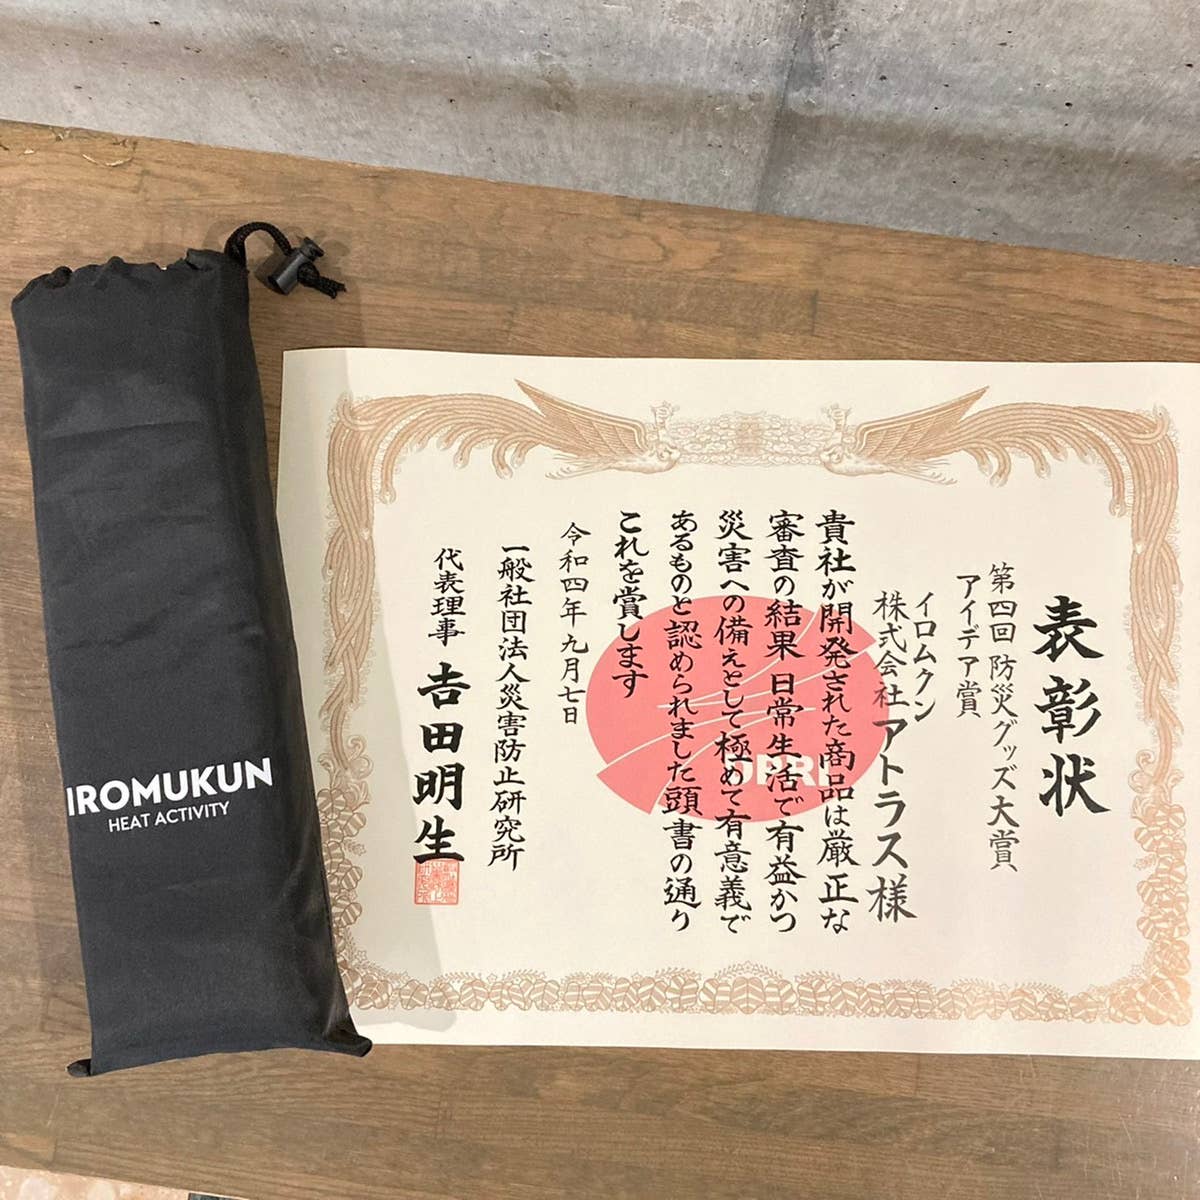 IROMUKUN
HEAT ACTIVITY
表彰状
第四回 防災グッズ大賞
アイデア賞
イロムクン
株式会社アトラス様
貴社が開発された商品は厳正な
審査の結果 日常生活で有益かつ
災害への備えとして極めて有意義で
あるものと認められました頭書の通り
これを賞します
令和四年九月七日
一般社団法人災害防止研究所
代表理事 吉田明生